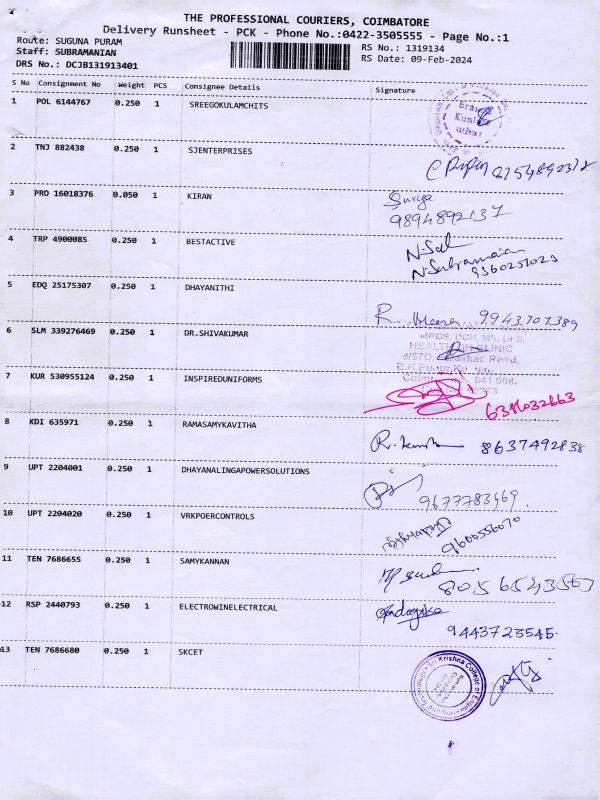 THE PROFESSIONAL COURIERS, COIMBATORE
Delivery Runsheet - PCK - Phone No.:0422-3505555 - Page No.:1
Route: SUGUNA PURAM
Staff: SUBRAMANIAN
DRS No.: DCJB131913401
RS No.: 1319134
RS Date: 09-Feb-2024
S No Consignment No Weight PCS Consignee Details Signature
1 POL 6144767 0.250 1 SREEGOKULAMCHITS
2 TNJ 882438 0.250 1 SJENTERPRISES
3 PRO 16018376 0.050 1 KIRAN Surya
9894892137
4 TRP 4900085 0.250 1 BESTACTIVE
N.Subramanian
9360251023
5 EDQ 25175307 0.250 1 DHAYANITHI
R. Meena 9943707389
6 SLM 339276469 0.250 1 DR.SHIVAKUMAR
MBBS, DCH, MS,
CLINIC
Road,
641 008.
7 KUR 530955124 0.250 1 INSPIREDUNIFORMS
8 KDI 635971 0.250 1 RAMASAMYKAVITHA
8637492838
9 UPT 2204001 0.250 1 DHAYANALINGAPOWERSOLUTIONS
9677783469
10 UPT 2204020 0.250 1 VRKPOERCONTROLS
9600556070
11 TEN 7686655 0.250 1 SAMYKANNAN
8056543563
12 RSP 2440793 0.250 1 ELECTROWINELECTRICAL
9443723545
13 TEN 7686680 0.250 1 SKCET
Sri Krishna College of Engineering and Technology